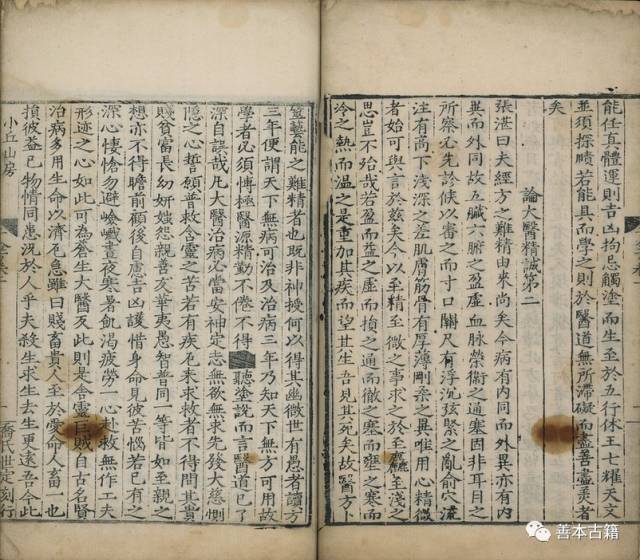 能任真體運則吉凶拘忌觸塗而生至於五行休王七耀天文
並須探賾若能具而學之則於醫道無所滯礙而盡善盡美者
矣
論大醫精誠第二
張湛曰夫經方之難精由來尚矣今病有内同而外異亦有内
異而外同故五臟六腑之盈虛血脉榮衞之通塞固非耳目之
所察必先診候以審之而寸口關尺有浮沉弦緊之亂俞穴流
注有高下淺深之差肌膚筋骨有厚薄剛柔之異唯用心精微
者始可與言於茲矣今以至精至微之事求之於至麁至淺之
思豈不殆哉若盈而益之虛而損之通而徹之塞而壅之寒而
冷之熱而温之是重加其疾而望其生吾見其死矣故醫方卜
筮藝能之難精者也既非神授何以得其幽微世有愚者讀方
三年便謂天下無病可治及治病三年乃知天下無方可用故
學者必須慱極醫源精勤不倦不得聽塗說而言醫道已了
深自誤哉凡大醫治病必當安神定志無欲無求先發大慈惻
隱之心誓願普救含靈之苦若有疾厄來求救者不得問其貴
賤貧富長幼妍媸怨親善友華夷愚智普同一等皆如至親之
想亦不得瞻前顧後自慮吉凶護惜身命見彼苦惱若己有之
深心悽愴勿避嶮巇晝夜寒暑飢渴疲勞一心赴救無作工夫
形迹之心如此可為蒼生大醫反此則是含靈巨賊自古名賢
治病多用生命以濟危急雖曰賤畜貴人至於愛命人畜一也
損彼益己物情同患況於人乎夫殺生求生去生更遠吾今此
小丘山房
喬氏世定刻行
善本古籍